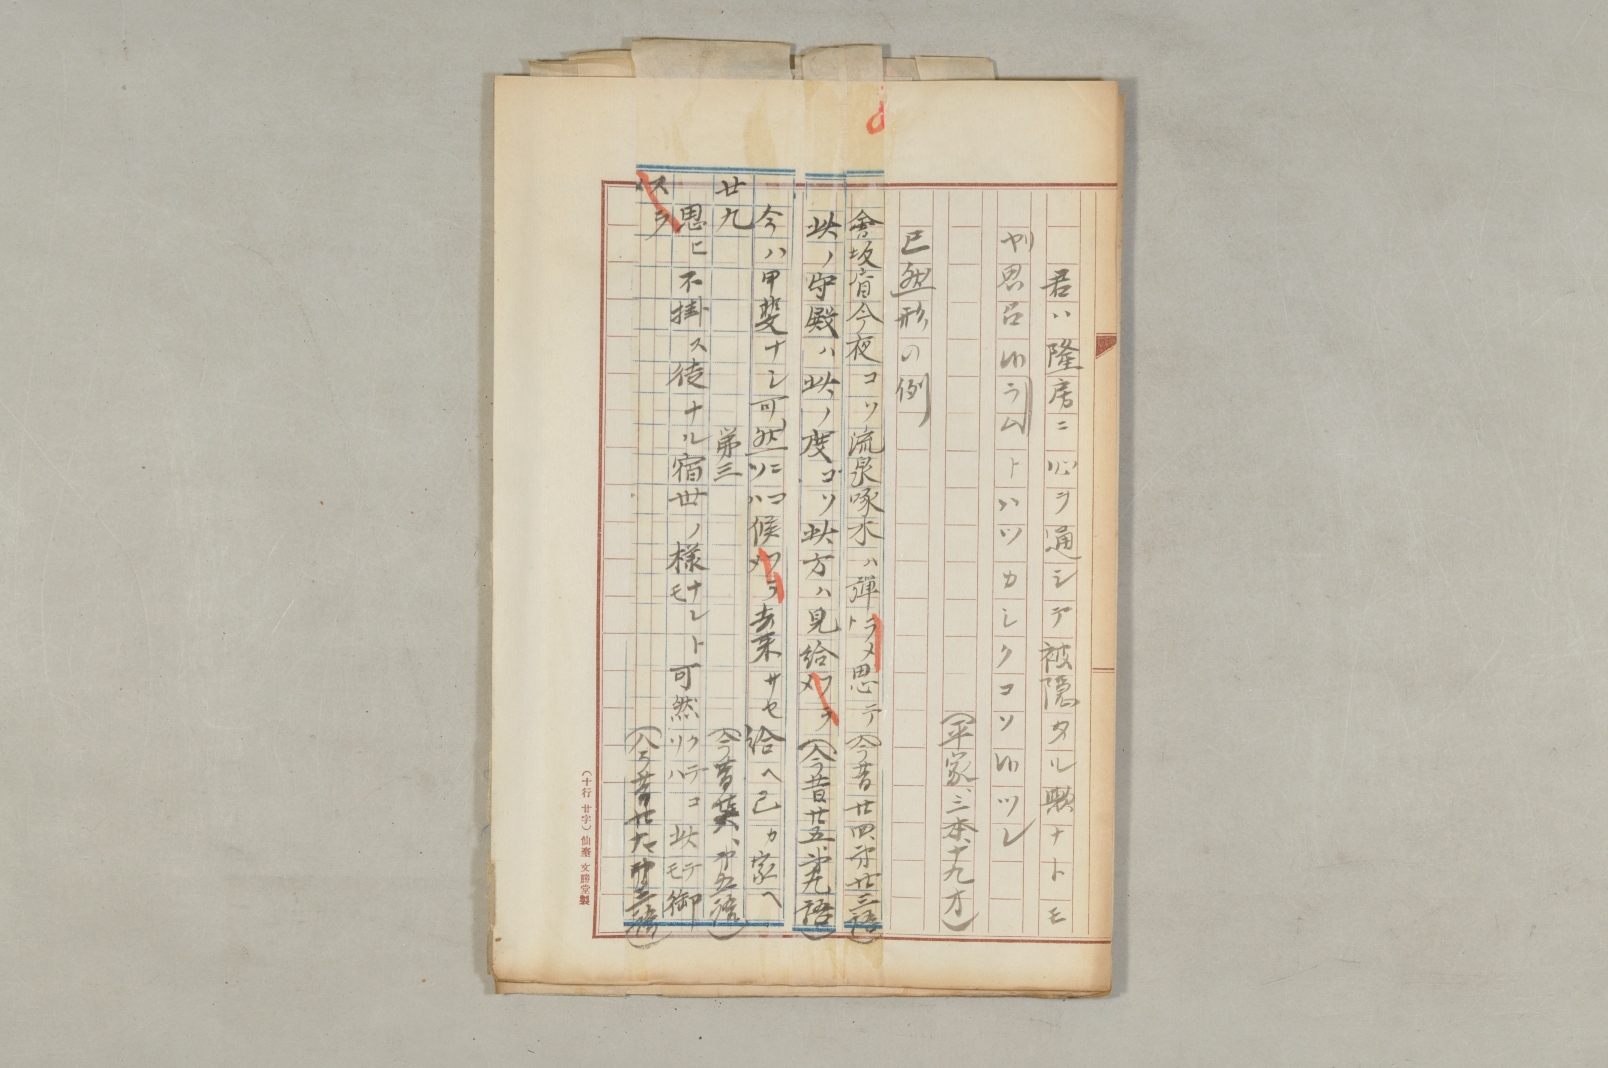 君ハ隆房ニ心ヲ通シテ被隠タル歟ナトモ
ヤ思召候ラムトハツカシクコソ候ツレ
(平家、三本、十九オ)
已然形の例
會坂盲今夜コソ流泉啄木ハ弾ラメト思テ(今昔廿四、第廿三語)
此ノ守殿ハ此ノ度ゴソ此方ハ見給フラメ(今昔廿五、第九語)
今ハ甲斐ナシ可然ニコソハ候フラメ去来サセ給ヘ己カ家ヘ
廿九 第三 (今昔、第五語)
思ヒ不掛ス徒ナル宿世ノ様ナレトモ可然クテコソハ此テモ御
スラ (今昔廿九、第三語)
(十行廿字)仙臺 文勝堂製